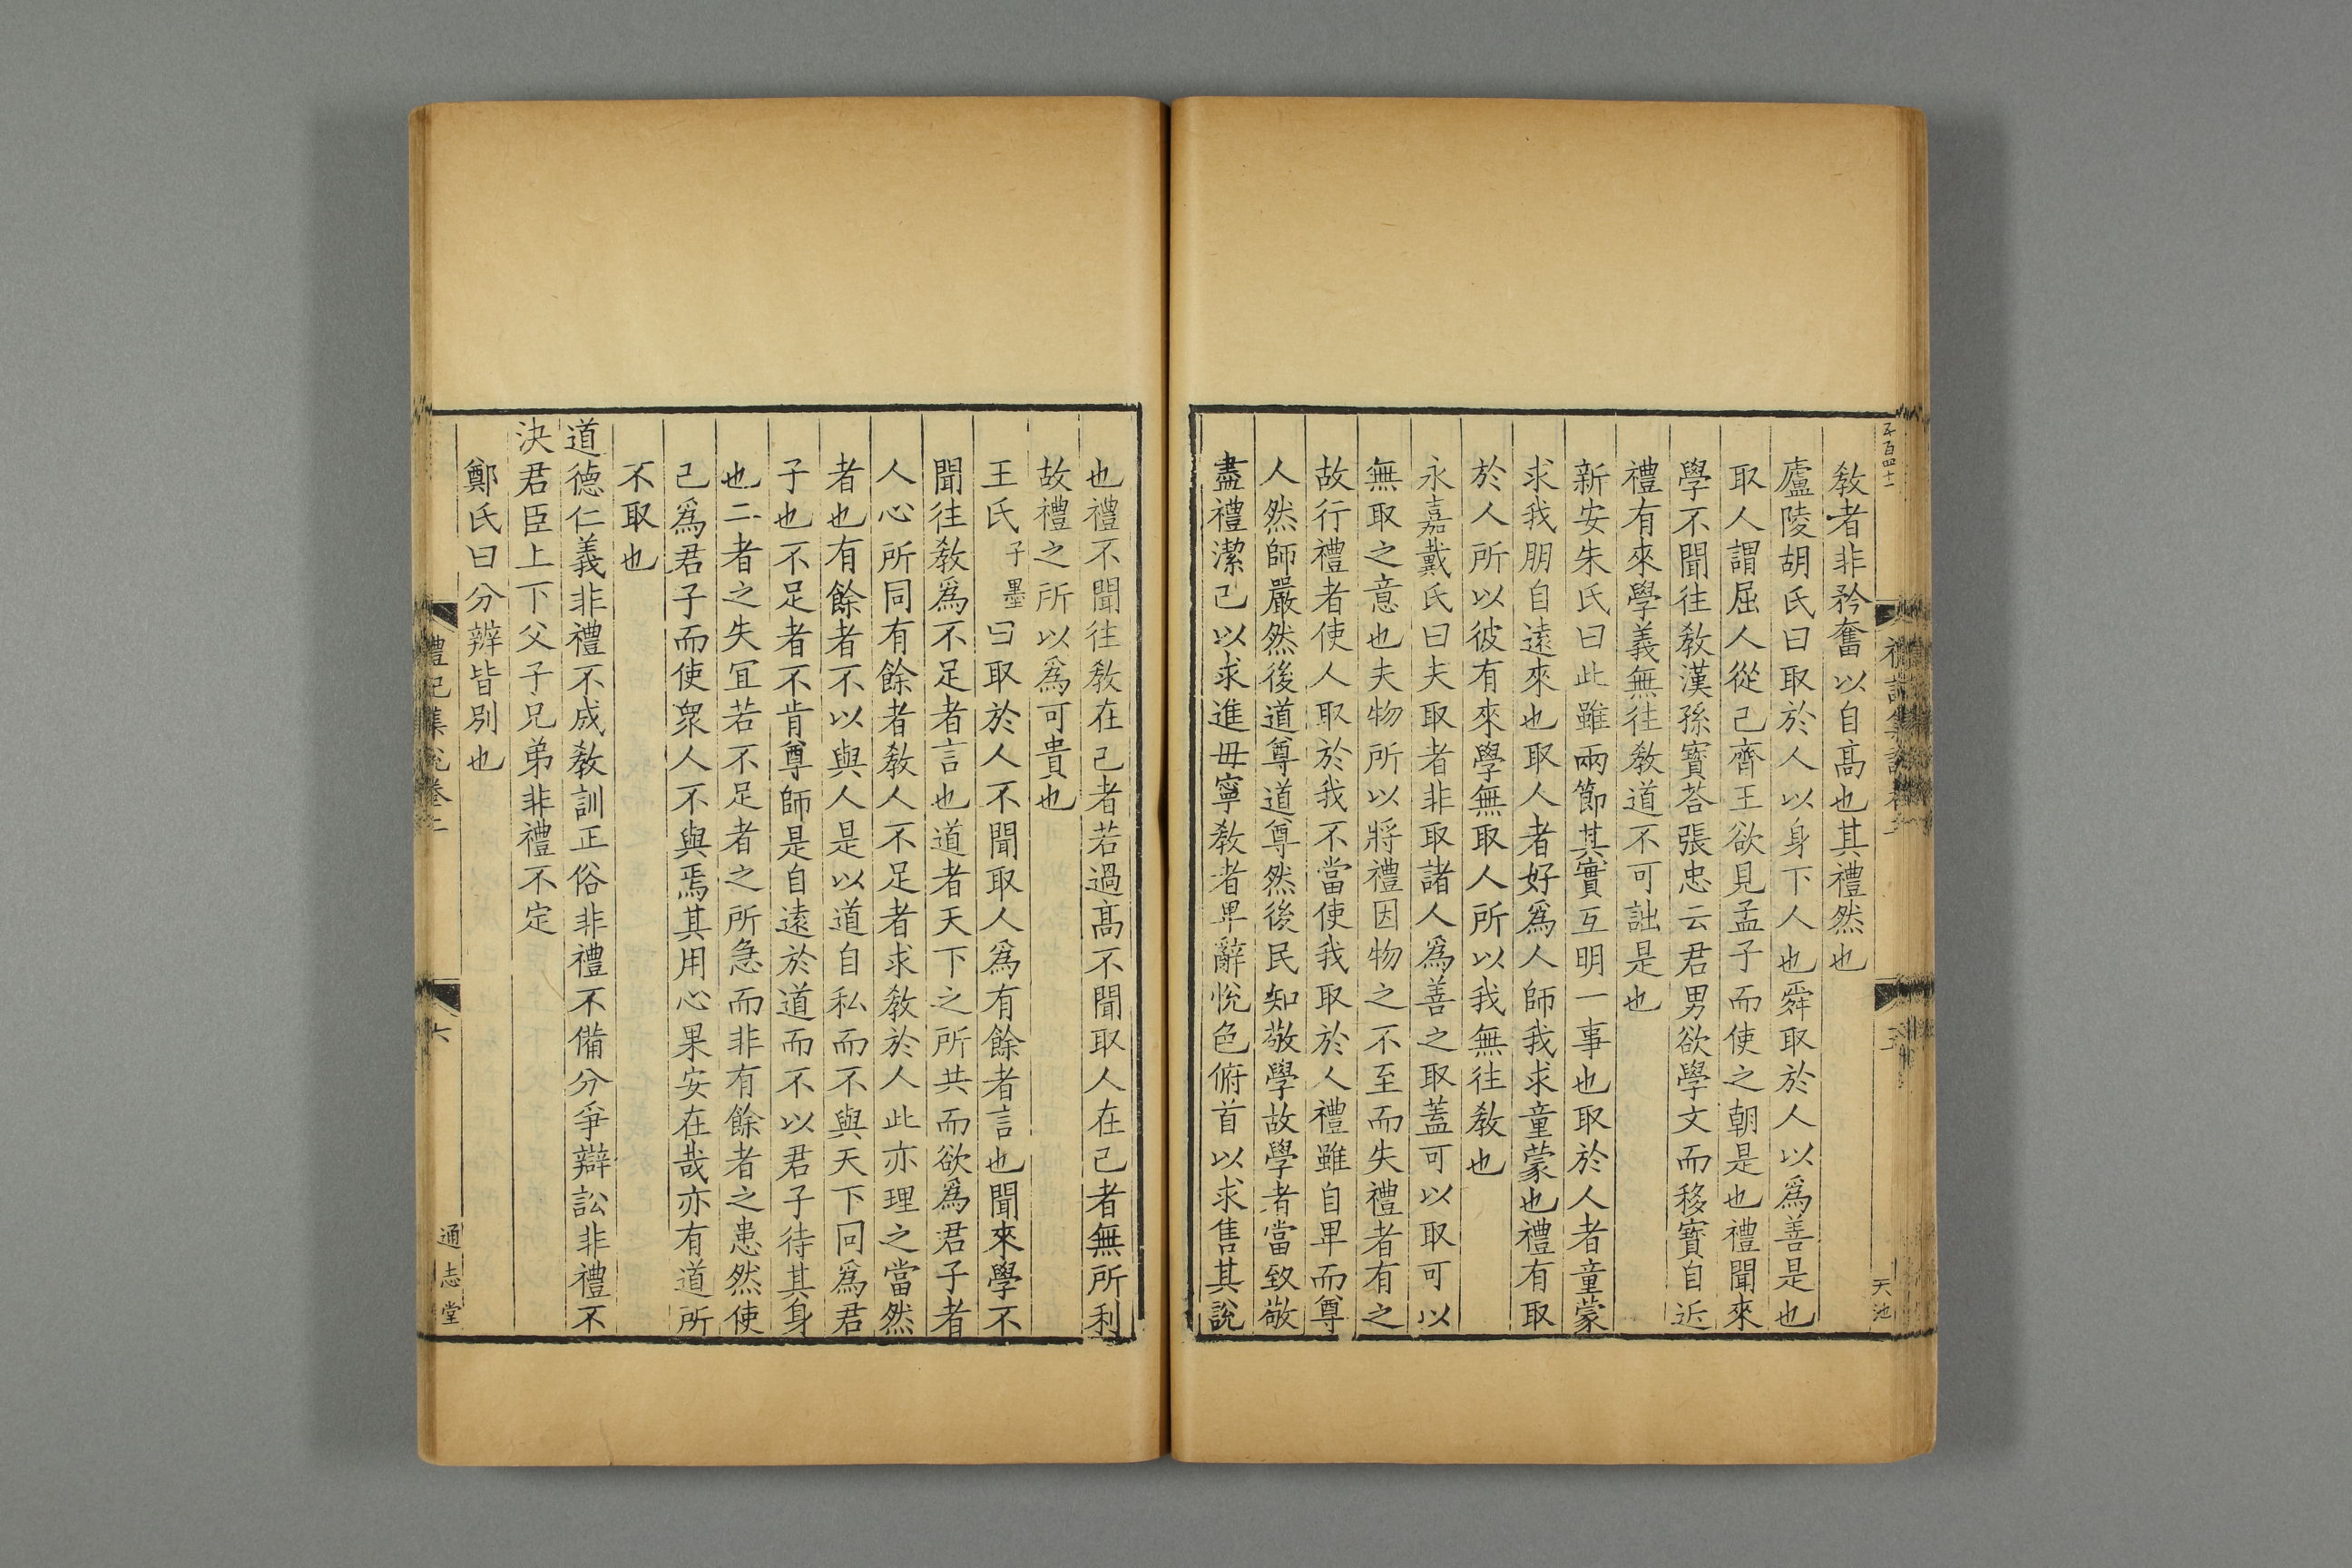 五百四十二
天池
敎者非矜奮以自高也其禮然也
廬陵胡氏曰取於人以身下人也舜取於人以爲善是也
取人謂屈人從己齊王欲見孟子而使之朝是也禮聞來
學不聞往敎漢孫寳荅張忠云君男欲學文而移寳自近
禮有來學義無往敎道不可詘是也
新安朱氏曰此雖兩節其實互明一事也取於人者童蒙
求我朋自遠來也取人者好爲人師我求童蒙也禮有取
於人所以彼有來學無取人所以我無往敎也
永嘉戴氏曰夫取者非取諸人爲善之取蓋可以取可以
無取之意也夫物所以將禮因物之不至而失禮者有之
故行禮者使人取於我不當使我取於人禮雖自畢而尊
人然師嚴然後道尊道尊然後民知敬學故學者當致敬
盡禮潔己以求進毋寧敎者畢辭悅色俯首以求售其說
也禮不聞往敎在己者若過高不聞取人在己者無所利
故禮之所以爲可貴也
王氏子墨曰取於人不聞取人爲有餘者言也聞來學不
聞往敎爲不足者言也道者天下之所共而欲爲君子者
人心所同有餘者敎人不足者求敎於人此亦理之當然
者也有餘者不以與人是以道自私而不與天下同爲君
子也不足者不肯尊師是自遠於道而不以君子待其身
也二者之失冝若不足者之所急而非有餘者之患然使
己爲君子而使衆人不與焉其用心果安在哉亦有道所
不取也
道德仁義非禮不成敎訓正俗非禮不備分爭辯訟非禮不
決君臣上下父子兄弟非禮不定
鄭氏曰分辨皆別也
禮記集說卷二
六
通志堂